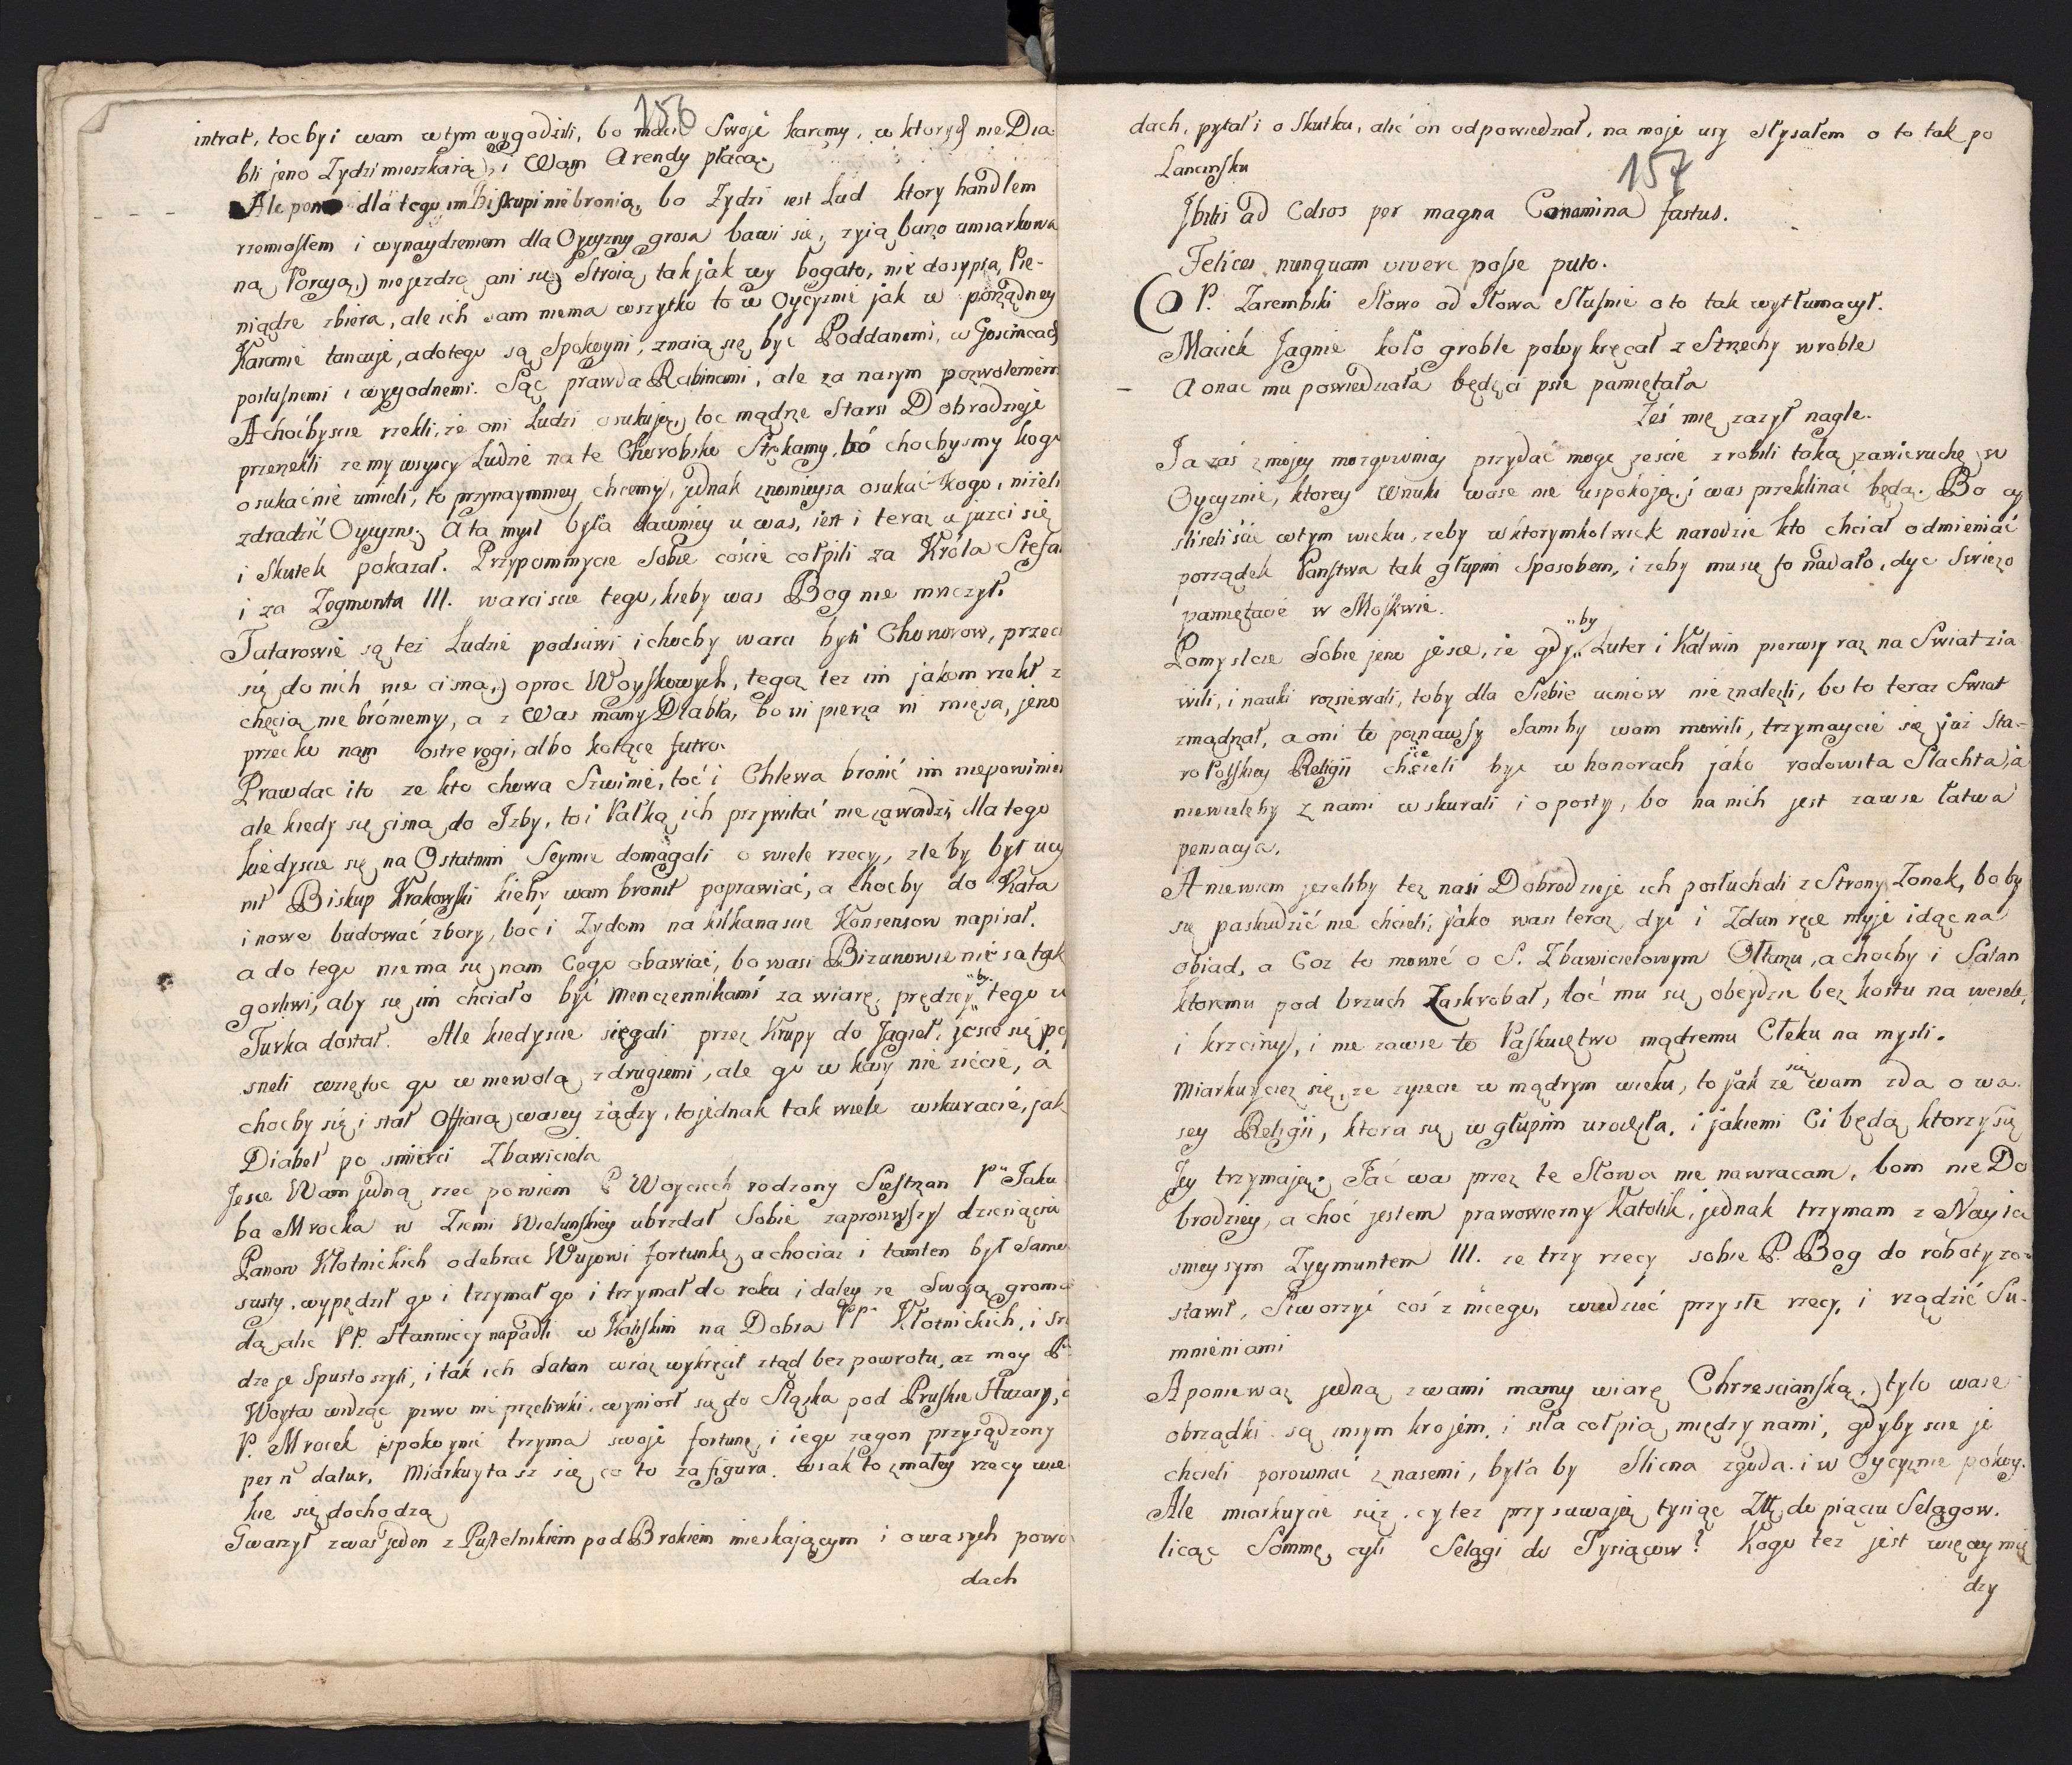 156
intrat, toc by i wam w tym wygodzili, bo macie Swoje karcmy, w ktorych nie Dia-
bli jeno Zydzi mieszkaią, i Wam Arendy płacą.
Ale dla tego im Biskupi nie bronią, bo Zydzi iest Lud ktory handlem
rzemiosłem i wynaydzeniem dla Oycyzny grosa bawi się, zyią barzo umiarkowa
ną Porcyą, nie jezdzą ani się Stroią tak jak wy bogato, nie dosypią, Pie-
niądze zbiera, ale ich sam niema wszytko to w Oycyznie jak w porządney
Karcmie tancuje, a do tego są Spokoyni, znaią się byc Poddanemi, w Goscincach
posłusnemi i wygodnemi. Sąc prawda Rabinami, ale za nasym pozwoleniem
A chocbyscie rzekli, ze oni Ludzi osukują, toc mądrze Starsi Dobrodzieje
przerzekli ze my wsyscy Ludzie na te Chorobsko Stękamy, bo chocbysmy kogo
osukać nie umieli, to przynaymniey chcemy, jednak znosnieysa osukać kogo, nizeli
zdradzić Oycyznę. A ta mysl była dawniey u was, iest i teraz a juzci się
i Skutek pokazał. Przypomniycie Sobie coście cołpili za Króla Stefa
i za Zegmonta III. warciscie tego, kieby was Bog nie mnozył.
Tatarowie są tez Ludzie podsciwi i chocby warci byli Chonorow, przeci
się do nich nie cisną, oproc Woyskowych, tegoz tez im jakom rzekł z
chęcią nie bróniemy, a z Was mamy Diabła, bo ni pierza ni mięsa, jeno
przeciko nam ostre rogi, albo kolące futro.
Prawdac i to ze kto chowa Swinie, toć i Chlewa bronić im niepowinien
ale kiedy się cisną do Izby, to i Pałką ich przywitać nie zawadzi, dla tego
kiedyscie się na Ostatnim Seymie domagali o wiele rzecy, zle by był ucy
nił Biskup Krakowski kieby wam bronił poprawiać, a chocby do Kata
i nowe budować zbory, boc i Zydom na kilkanascie Konsensow napisał.
a do tego niema się nam Cego obawiać, bo wasi Bizunowie nie są tak
gorliwi, aby się im chciało być Mencennikami za wiarę, prędzey by tego u
Turka dostał. Ale kiedyscie sięgali przez Krupy do Jagieł, jesce się po
sneli wzięłoc go w niewolą z drugiemi, ale go w kasy nie zićcie, á
chocby się i stał Offiarą wasey ządzy, to jednak tak wiele wskuracie, jak
Diabeł po smierci Zbawiciela
Jesce Wam jedną rzec powiem P Woyciech rodzony Siestrzan P. Jaku-
ba Mrocka w Ziemi Wielunskiey ubrzdał Sobie zaprosiwszy dziesiącin
Panow Kłotnickich odebrac Wujowi fortunkę, a chociaz i tamten był Same
susty, wypędził go i trzymał go i trzymał do roku i daley ze Swoją groma
dą alic PP. Stanniccy napadli w Kaliskim na Dobra PP. Kłotnickich, i sr
dze je Spustoszyli, i tak ich Satan wraz wykręcił ztąd bez powrotu, az moy P.
Woyta widząc piwo nie przeliwki, wyniosł się do Sląska pod Pruskie Huzary, a
P. Mrocek spokoynie trzyma swoje fortunę, i iego zagon przysądzony
per n datur. Miarkuyta sz się co to za figura. wsak to z małey rzecy wie
kie się dochodzą
Gwarzył z was jeden z Pustelnikiem pod Brokiem mieskającym i o wasych powo
dach
157
dach, pytał i o Skutku, alić on odpowiedział, na moje usy słysałem o to tak po
Lancinsku
Ibitis ad Celsos per magna Conamina fastus.
Felices nunquam vivere posse puto.
A P. Zarembski Słowo od Słowa Słusnie o to tak wytłumacył.
Maciek Jagnie koło groble powykręcał z Strzechy wroble
A onac mu powiedziała będę ci psie pamiętała
Ześ mię zazył nagle.
Ja zaś z mojey mozgownicy przydać mogę zeście zrobili taką zawieruchę w
Oycyznie, ktorey Wnuki wase nie uspokoją, i was przeklinać będą. Bo cy
sliseliście w tym wieku, zeby w ktorymkolwiek narodzie kto chciał odmieniać
porządek Panstwa tak głupim Sposobem, i zeby mu się to nadało, dyc Swiezo
pamiętacie w Moskwie.
Pomyslcie Sobie jeno jesce, ze gdy by Luter i Kalwin pierwsy raz na Swiat zia
wili, i nauki rozsiewali, toby dla Siebie ucniow nie znalezli, bo to teraz Swiat
zmądrzał, a oni to poznawsy Sami by wam mowili, trzymaycie się juz Sta-
ro Polskiey Religii chcecieli byc w honorach jako rodowita Slachta, a
niewieleby z nami wskurali i o posty, bo na nich jest zawse łatwa
pensacyja.
A niewiem jezeliby tez nasi Dobrodzieje ich posłuchali z Strony Zonek, bo by
się paskudzić nie chcieli, jako wasi teraz, dyc i Zdun ręce myje idąc na
obiad, a Coz to mowić o S. Zbawicielowym Ołtarzu, a chocby i Satan
ktoremu pod brzuch Zaskrobał, toć mu się obeydzie bez kostu na wesele,
i krzciny, i nie zawse to Paskudztwo mądremu Cłeku na mysli.
Miarkuycież się, ze zyiecie w mądrym wieku, to jak ze się wam zda o wa-
sey Religii, ktora się w głupim urodziła, i jakiemi Ci będą, ktorzy się
Jey trzymają? Jać was przez te Słowa nie nawracam, bom nie Do
brodziey, a choć jestem prawowierny Katolik, jednak trzymam z Nayia
snieysym Zygmuntem III. ze trzy rzecy sobie P. Bog do roboty zo-
stawił, Stworzyć coś z nicego, wiedzieć przyszłe rzecy, i rządzić Su-
mnieniami
A poniewaz jedną z wami mamy wiarę Chrzescianską, tylo wase
obrządki są insym krojem, i siła cołpią między nami, gdyby scie je
chcieli porownać z nasemi, była by Slicna zgoda i w Oycyznie pokoy.
Ale miarkuycie się z cy tez przysuwają tysiąc Złł do piąciu Selągow.
licąc Sommę, cyli Selągi do Tysiącow? Kogo tez jest więcy mię
dzy